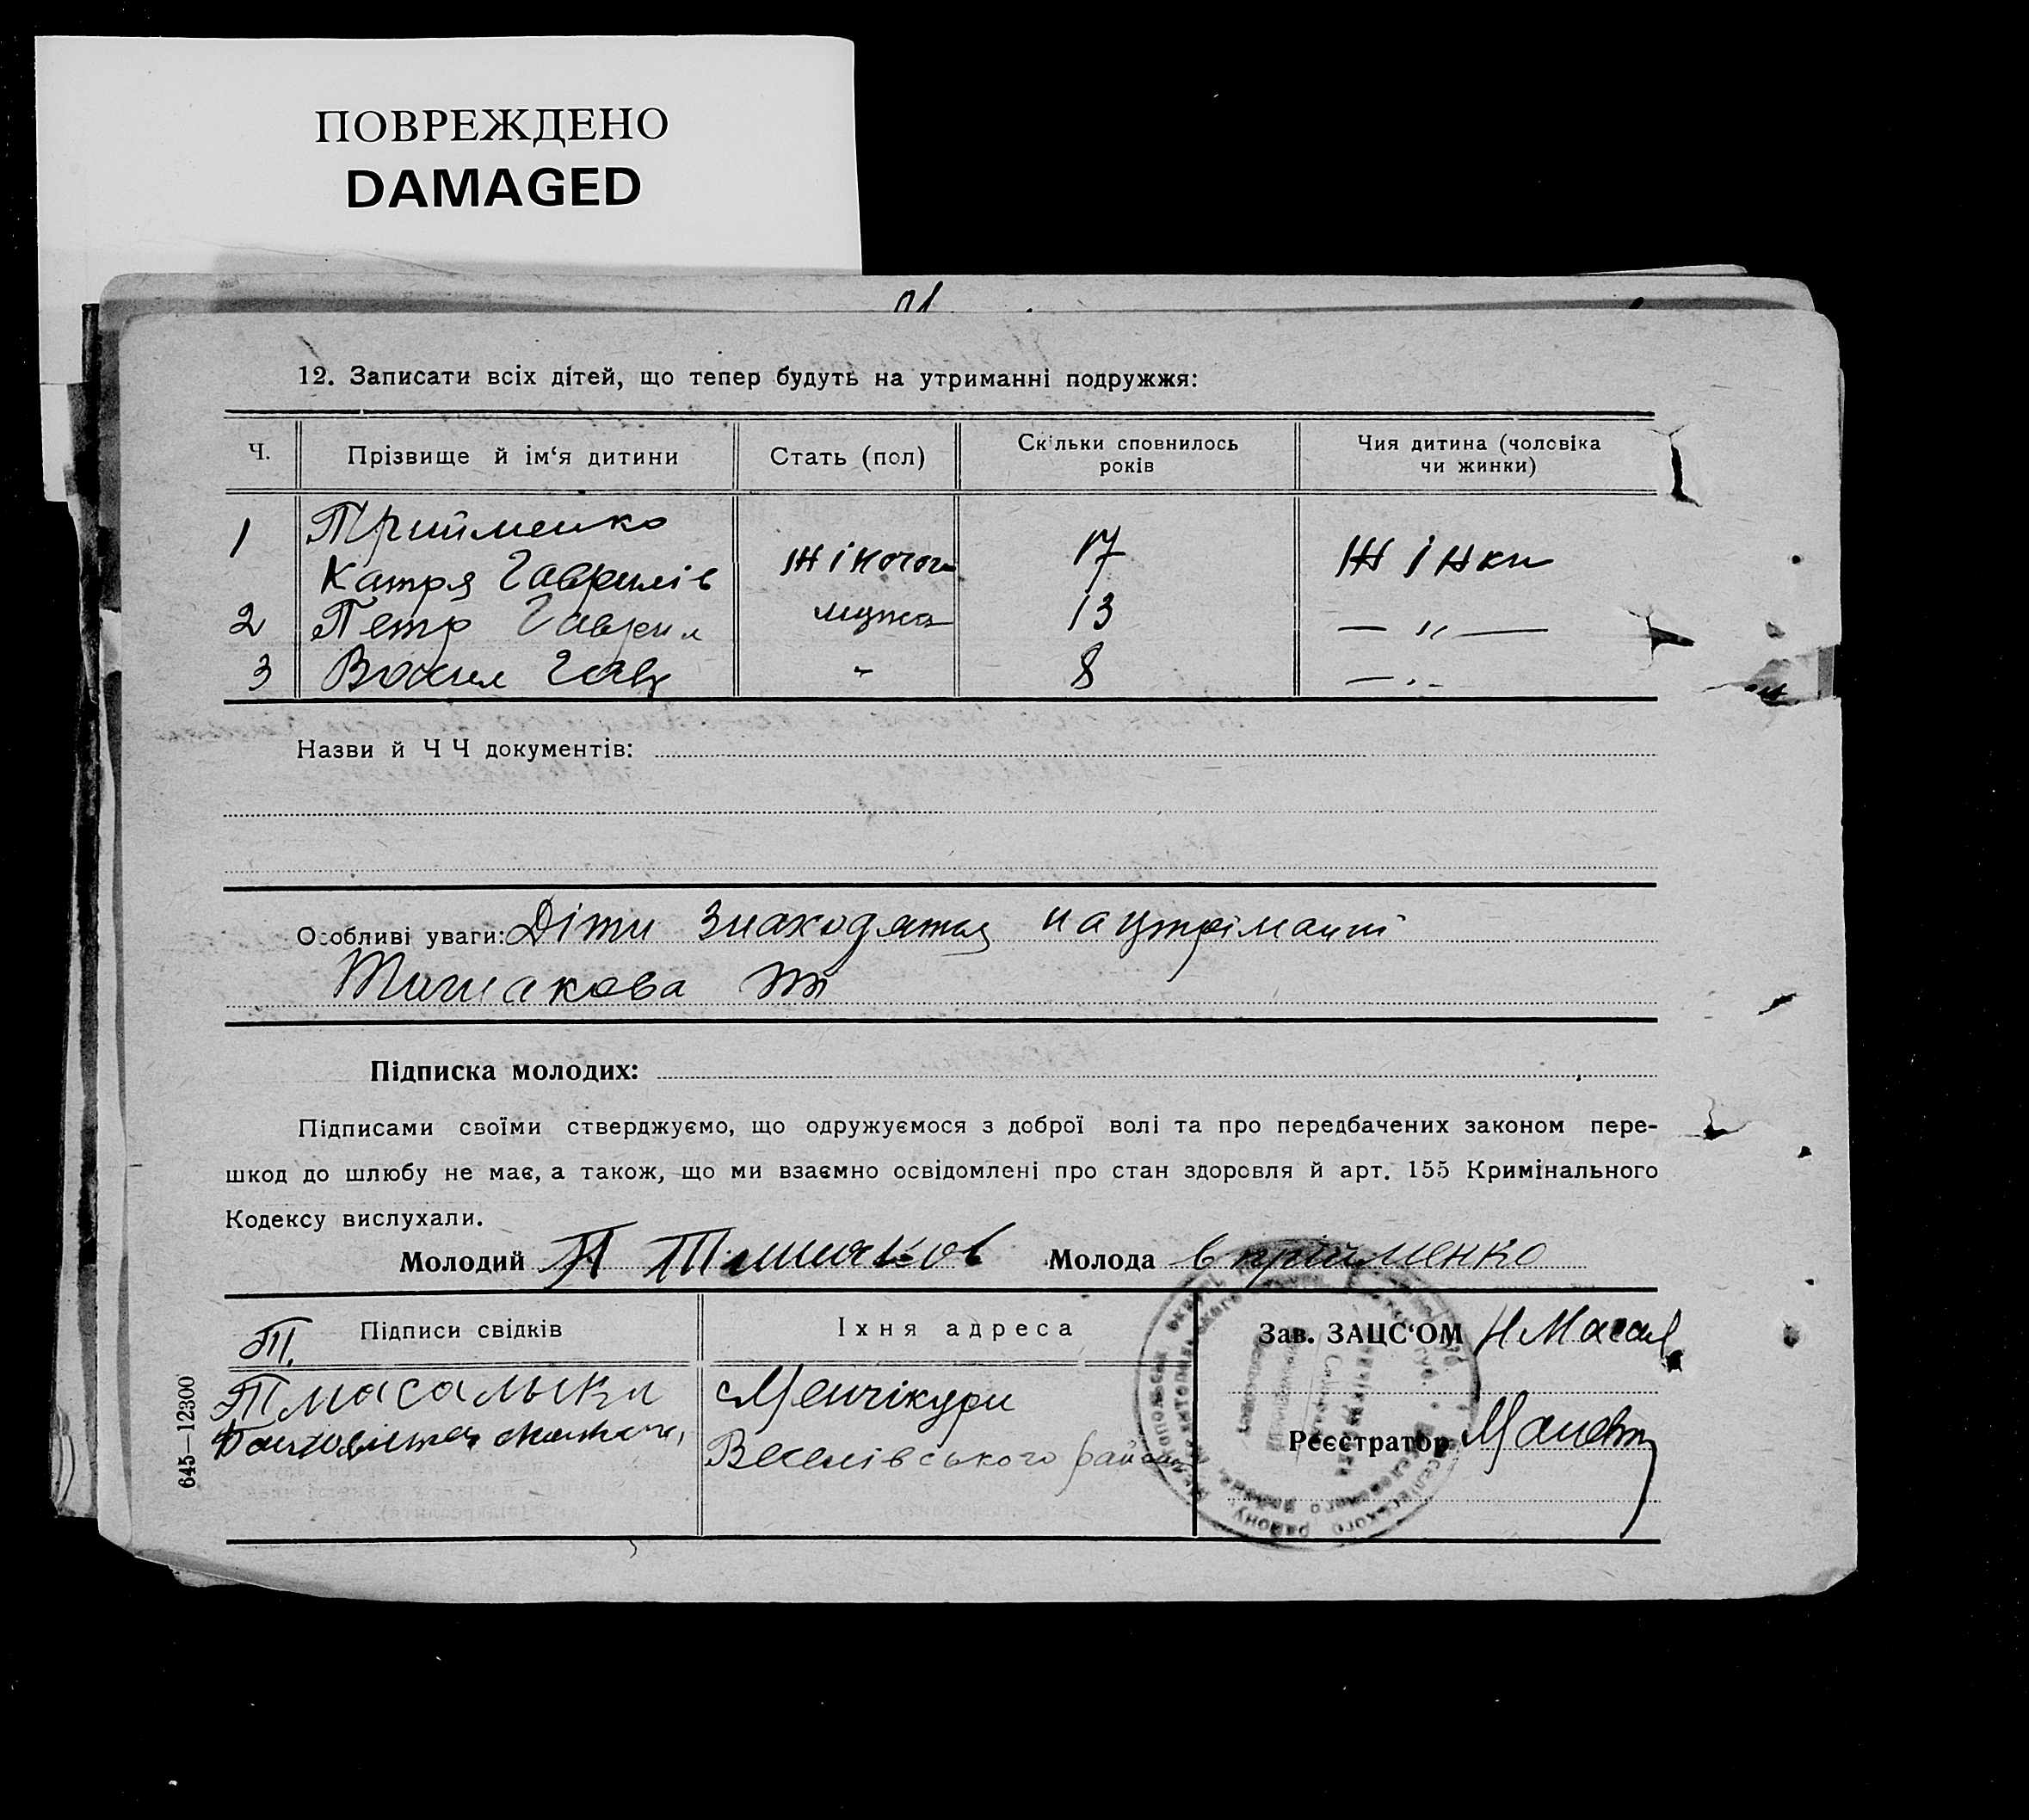 ПОВРЕЖДЕНО
DAMAGED
12. Записати всіх дітей, що тепер будуть на утриманні подружжя:
Ч. Прізвище й ім‘я дитини Стать (пол) Скільки сповнилось років Чия дитина (чоловіка чи жинки)
1 Прийменко
Катря Гаврилів Жіночог 17 Жінки
2 Петр Гаврил мужса 13 — „ —
3 Васил Гавр " 8 — „ —
Назви й Ч Ч документів:
Особливі уваги: Діти знаходятся на утріманні
Підписка молодих:
Підписами своїми стверджуємо, що одружуємося з доброї волі та про передбачених законом пере-
шкод до шлюбу не має, а також, що ми взаємно освідомлені про стан здоровля й арт. 155 Кримінального
Кодексу вислухали.
Молодий Молода в прійменко
Підписи свідків Їхня адреса Зав. ЗАЦС‘ОМ
Т масалыки Менчікури
Веселівського район
Реєстратор
645—12300